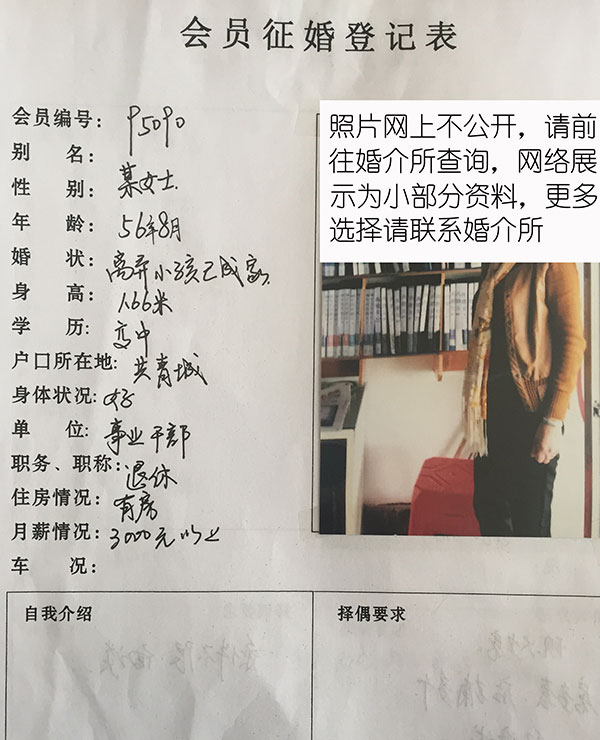 会员征婚登记表
会员编号: 95090
别 名:
性 别: 某女士
年 龄: 56年8月
婚 状: 离异小孩已成家
身 高: 1.66米
学 历: 高中
户口所在地: 共青城
身体状况: 好
单 位: 事业干部
职务、职称: 退休
住房情况: 有房
月薪情况: 3000元以上
车 况:
照片网上不公开，请前
往婚介所查询，网络展
示为小部分资料，更多
选择请联系婚介所
自我介绍
择偶要求